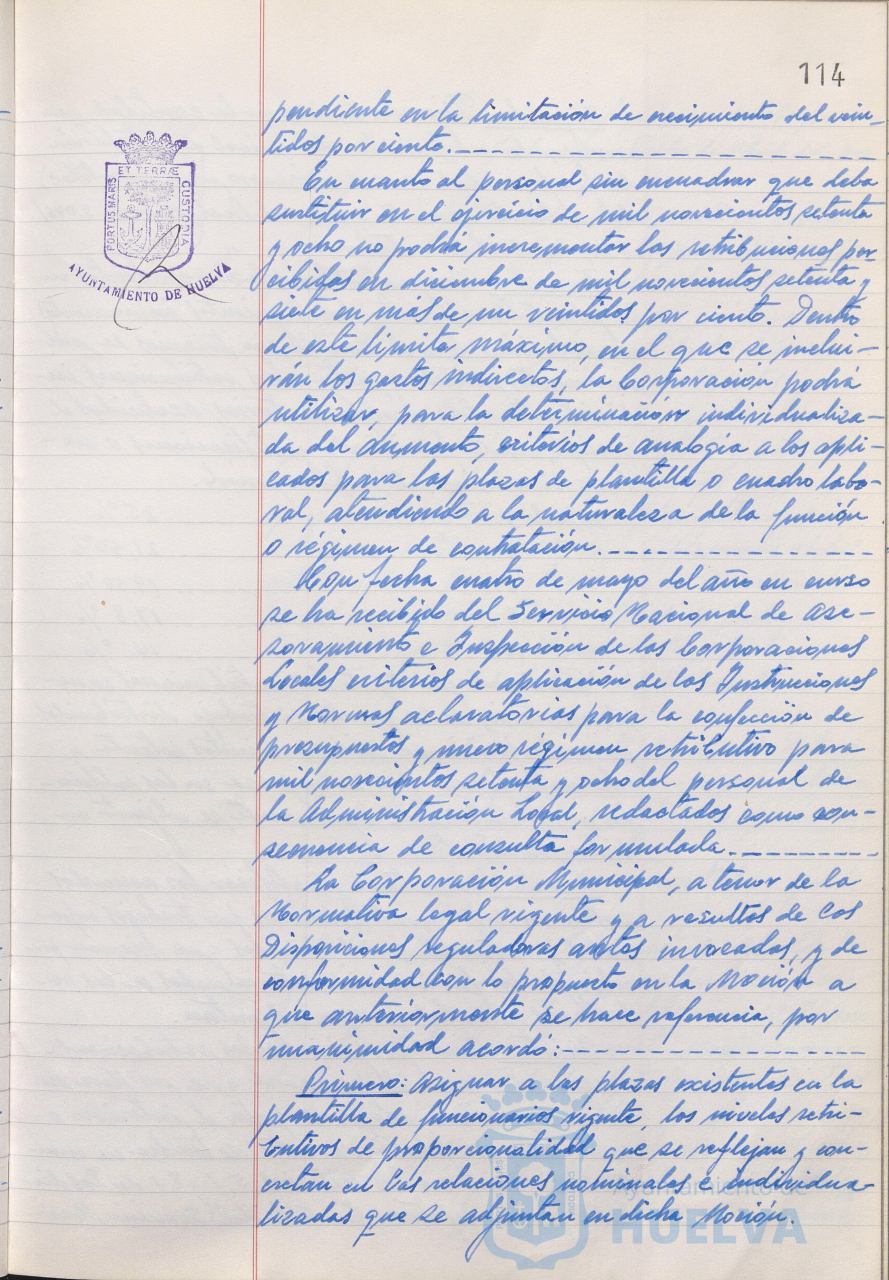 114
pendiente en la limitación de crecimiento del vein-
tidos por ciento.
En cuanto al personal sin encuadrar que deba
sustituir en el ejercicio de mil novecientos setenta
y ocho no podrá incrementar las retribuciones per-
cibidas en diciembre de mil novecientos setenta y
siete en más de un veintidos por ciento. Dentro
de este limite máximo, en el que se inclui-
rán los gastos indirectos, la Corporación podrá
utilizar, para la determinación individualiza-
da del aumento, criterios de analogia a los apli-
cados para las plazas de plantilla o cuadro labo-
ral, atendiendo a la naturaleza de la función
o régimen de contratación.
Con fecha cuatro de mayo del año en curso
se ha recibido del Servicio Nacional de Ase-
soramiento e Inspección de las Corporaciones
Locales criterios de aplicación de las Instrucciones
y Normas aclaratorias para la confección de
presupuestos y nuevo régimen retributivo para
mil novecientos setenta y ocho del personal de
la Administración Local, redactados como con-
secuencia de consulta formulada.
La Corporación Municipal, a tenor de la
Normativa legal vigente y a resultas de las
Disposiciones reguladoras antes invocadas, y de
conformidad con lo propuesto en la Moción a
que anteriormente se hace referencia, por
unanimidad acordó:
Primero: Asignar a las plazas existentes en la
plantilla de funcionarios vigente, los niveles retri-
butivos de proporcionalidad que se reflejan y con-
cretan en las relaciones nominales e individua-
lizadas que se adjuntan en dicha Moción.
PORTUS MARIS ET TERRÆ CUSTODIA
AYUNTAMIENTO DE HUELVA
Ayuntamiento de
HUELVA